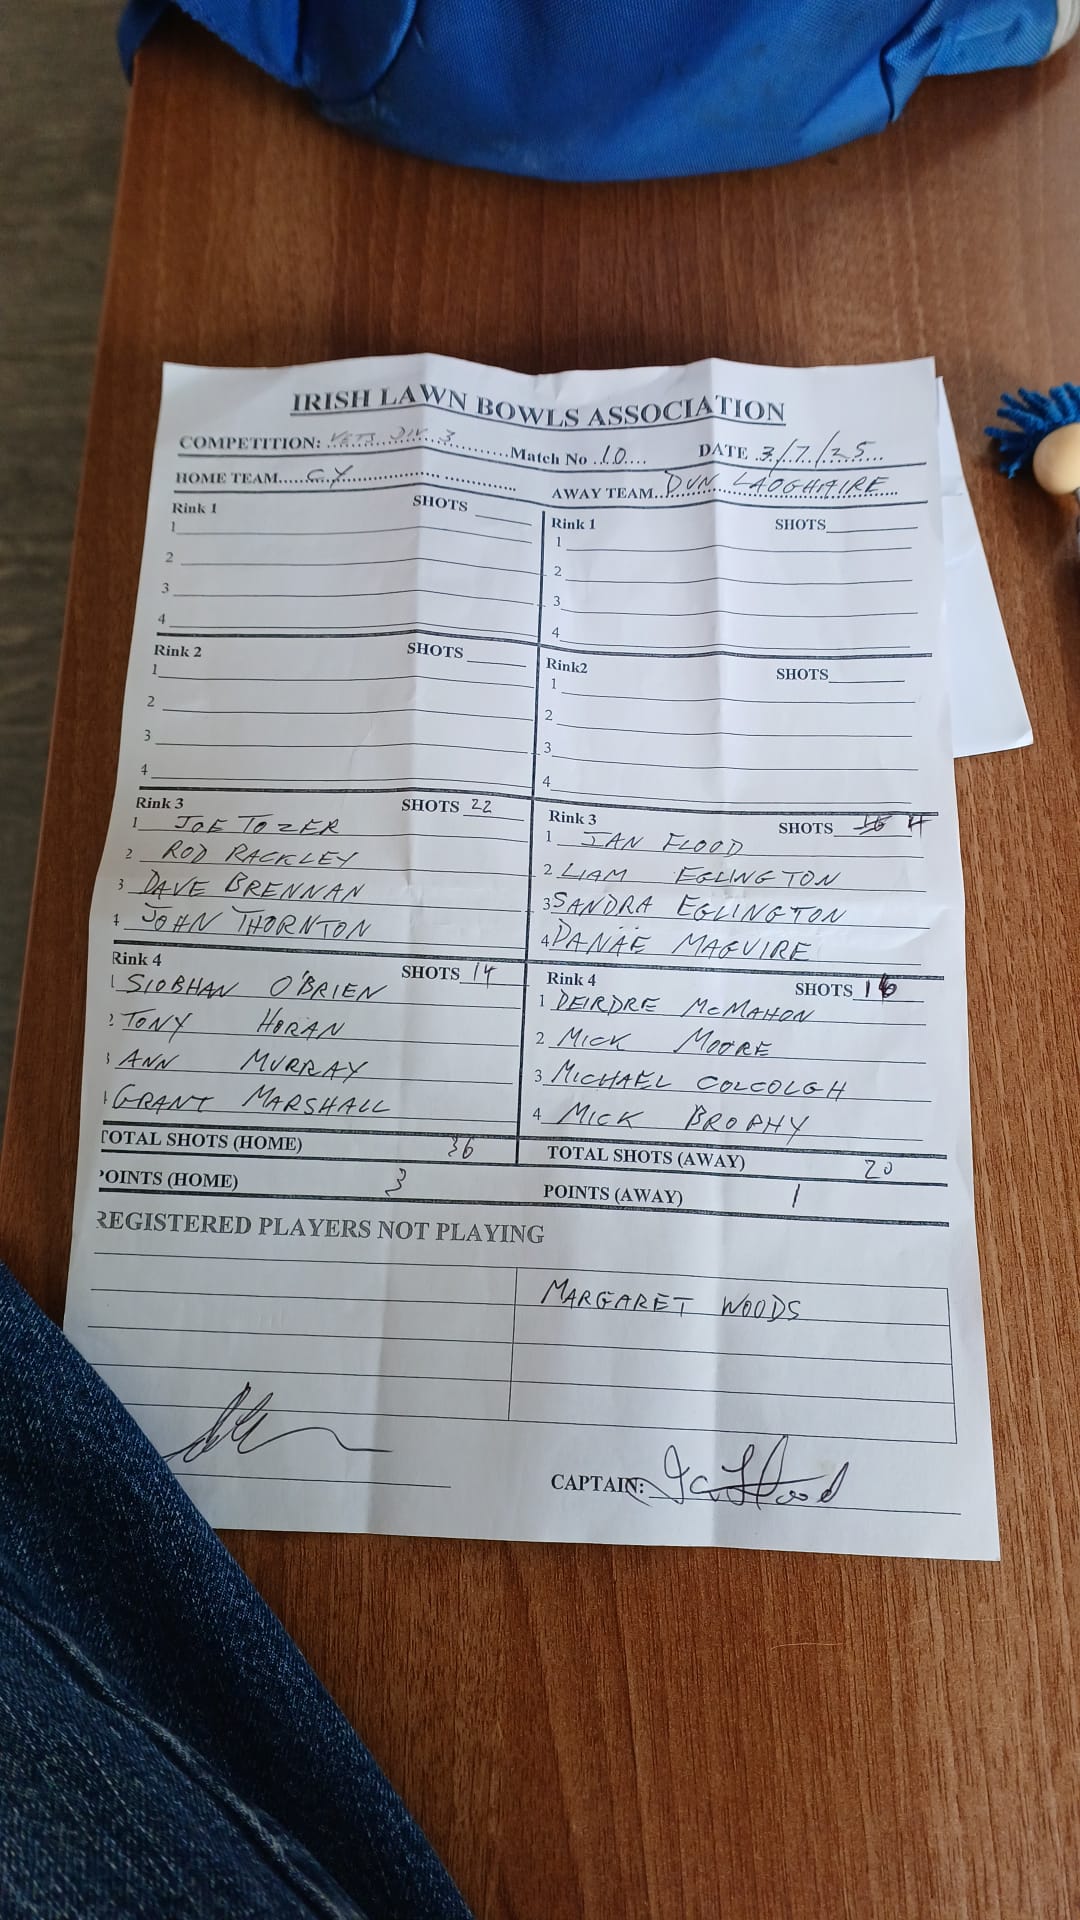 IRISH LAWN BOWLS ASSOCIATION
COMPETITION: VETS DIV. 3 Match No 10 DATE 3/7/25
HOME TEAM C.Y. AWAY TEAM DUN LAOGHAIRE
Rink 1 SHOTS
1
2
3
4
Rink 1 SHOTS
1
2
3
4
Rink 2 SHOTS
1
2
3
4
Rink2 SHOTS
1
2
3
4
Rink 3 SHOTS 22
1 JOE TOZER
2 ROD RACKLEY
3 DAVE BRENNAN
4 JOHN THORNTON
Rink 3 SHOTS 4
1 IAN FLOOD
2 LIAM EGLINGTON
3 SANDRA EGLINGTON
4 DANÄE MAGUIRE
Rink 4 SHOTS 14
1 SIOBHAN O'BRIEN
2 TONY HORAN
3 ANN MURRAY
GRANT MARSHALL
Rink 4 SHOTS 16
1 DEIRDRE McMAHON
2 MICK MOORE
3 MICHAEL COLCOLGH
4 MICK BROPHY
TOTAL SHOTS (HOME) 36
TOTAL SHOTS (AWAY) 20
POINTS (HOME) 3
POINTS (AWAY) 1
REGISTERED PLAYERS NOT PLAYING
MARGARET WOODS
CAPTAIN: Ian Flood